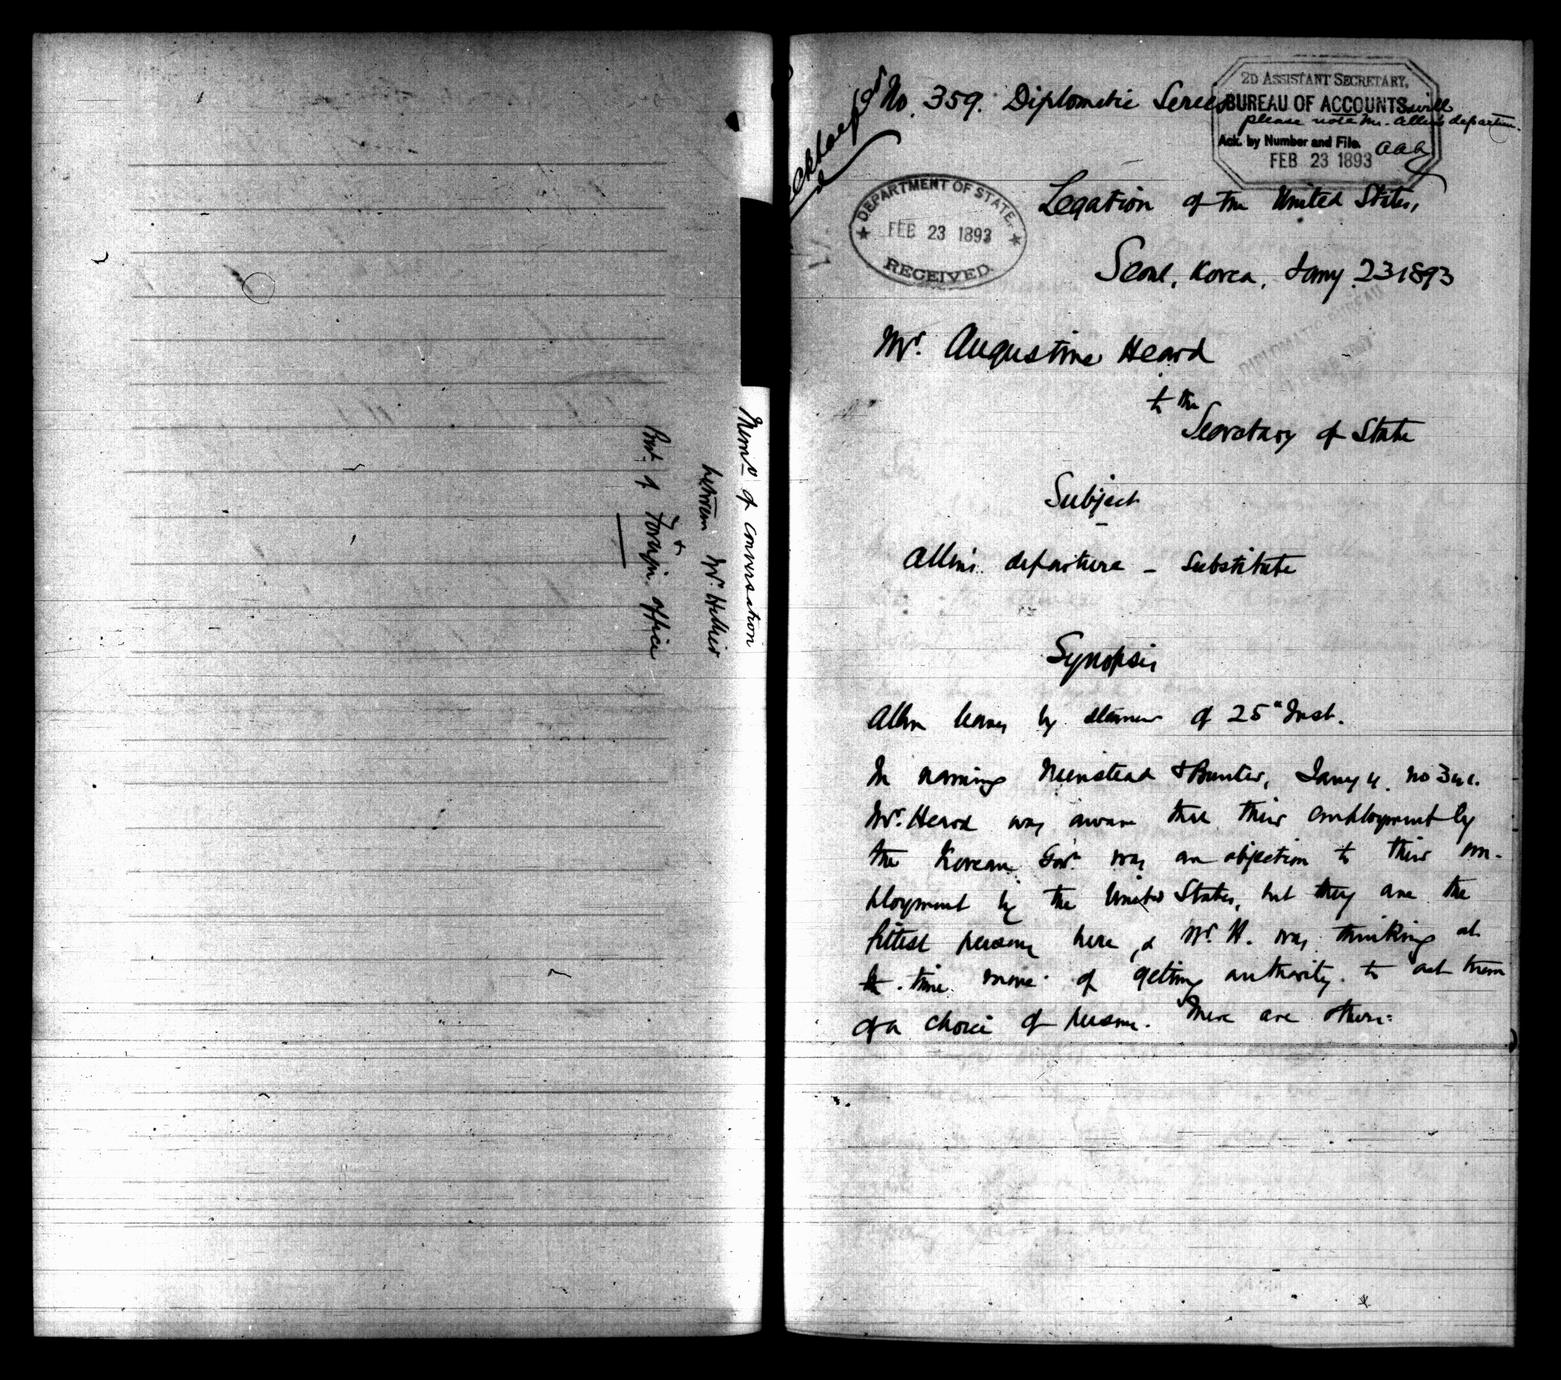 Memo of conversation
between Mr. Hillier
&
Prest. of Foreign office
No. 359. Diplomatic Series
2D ASSISTANT SECRETARY,
BUREAU OF ACCOUNTS will
please note Mr. Allen's departure.
Ack. by Number and File. AAA
FEB 23 1893
DEPARTMENT OF STATE.
FEB 23 1893
RECEIVED
Legation of the United States,
Seoul, Korea, Jany. 23 1893
Mr. Augustine Heard
to the
Secretary of State
Subject
Allen's departure – Substitute
Synopsis
Allen leaves by steamer of 25" Inst.
In naming Nienstead & Bunker, Jany 4. no
Mr. Heard was aware that their employment by
the Korean Govt was an objection to their em-
ployment by the United States, but they are the
fittest persons here, & Mr. H. was thinking at
the time more of getting authority to act than
of a choice of person. There are others.